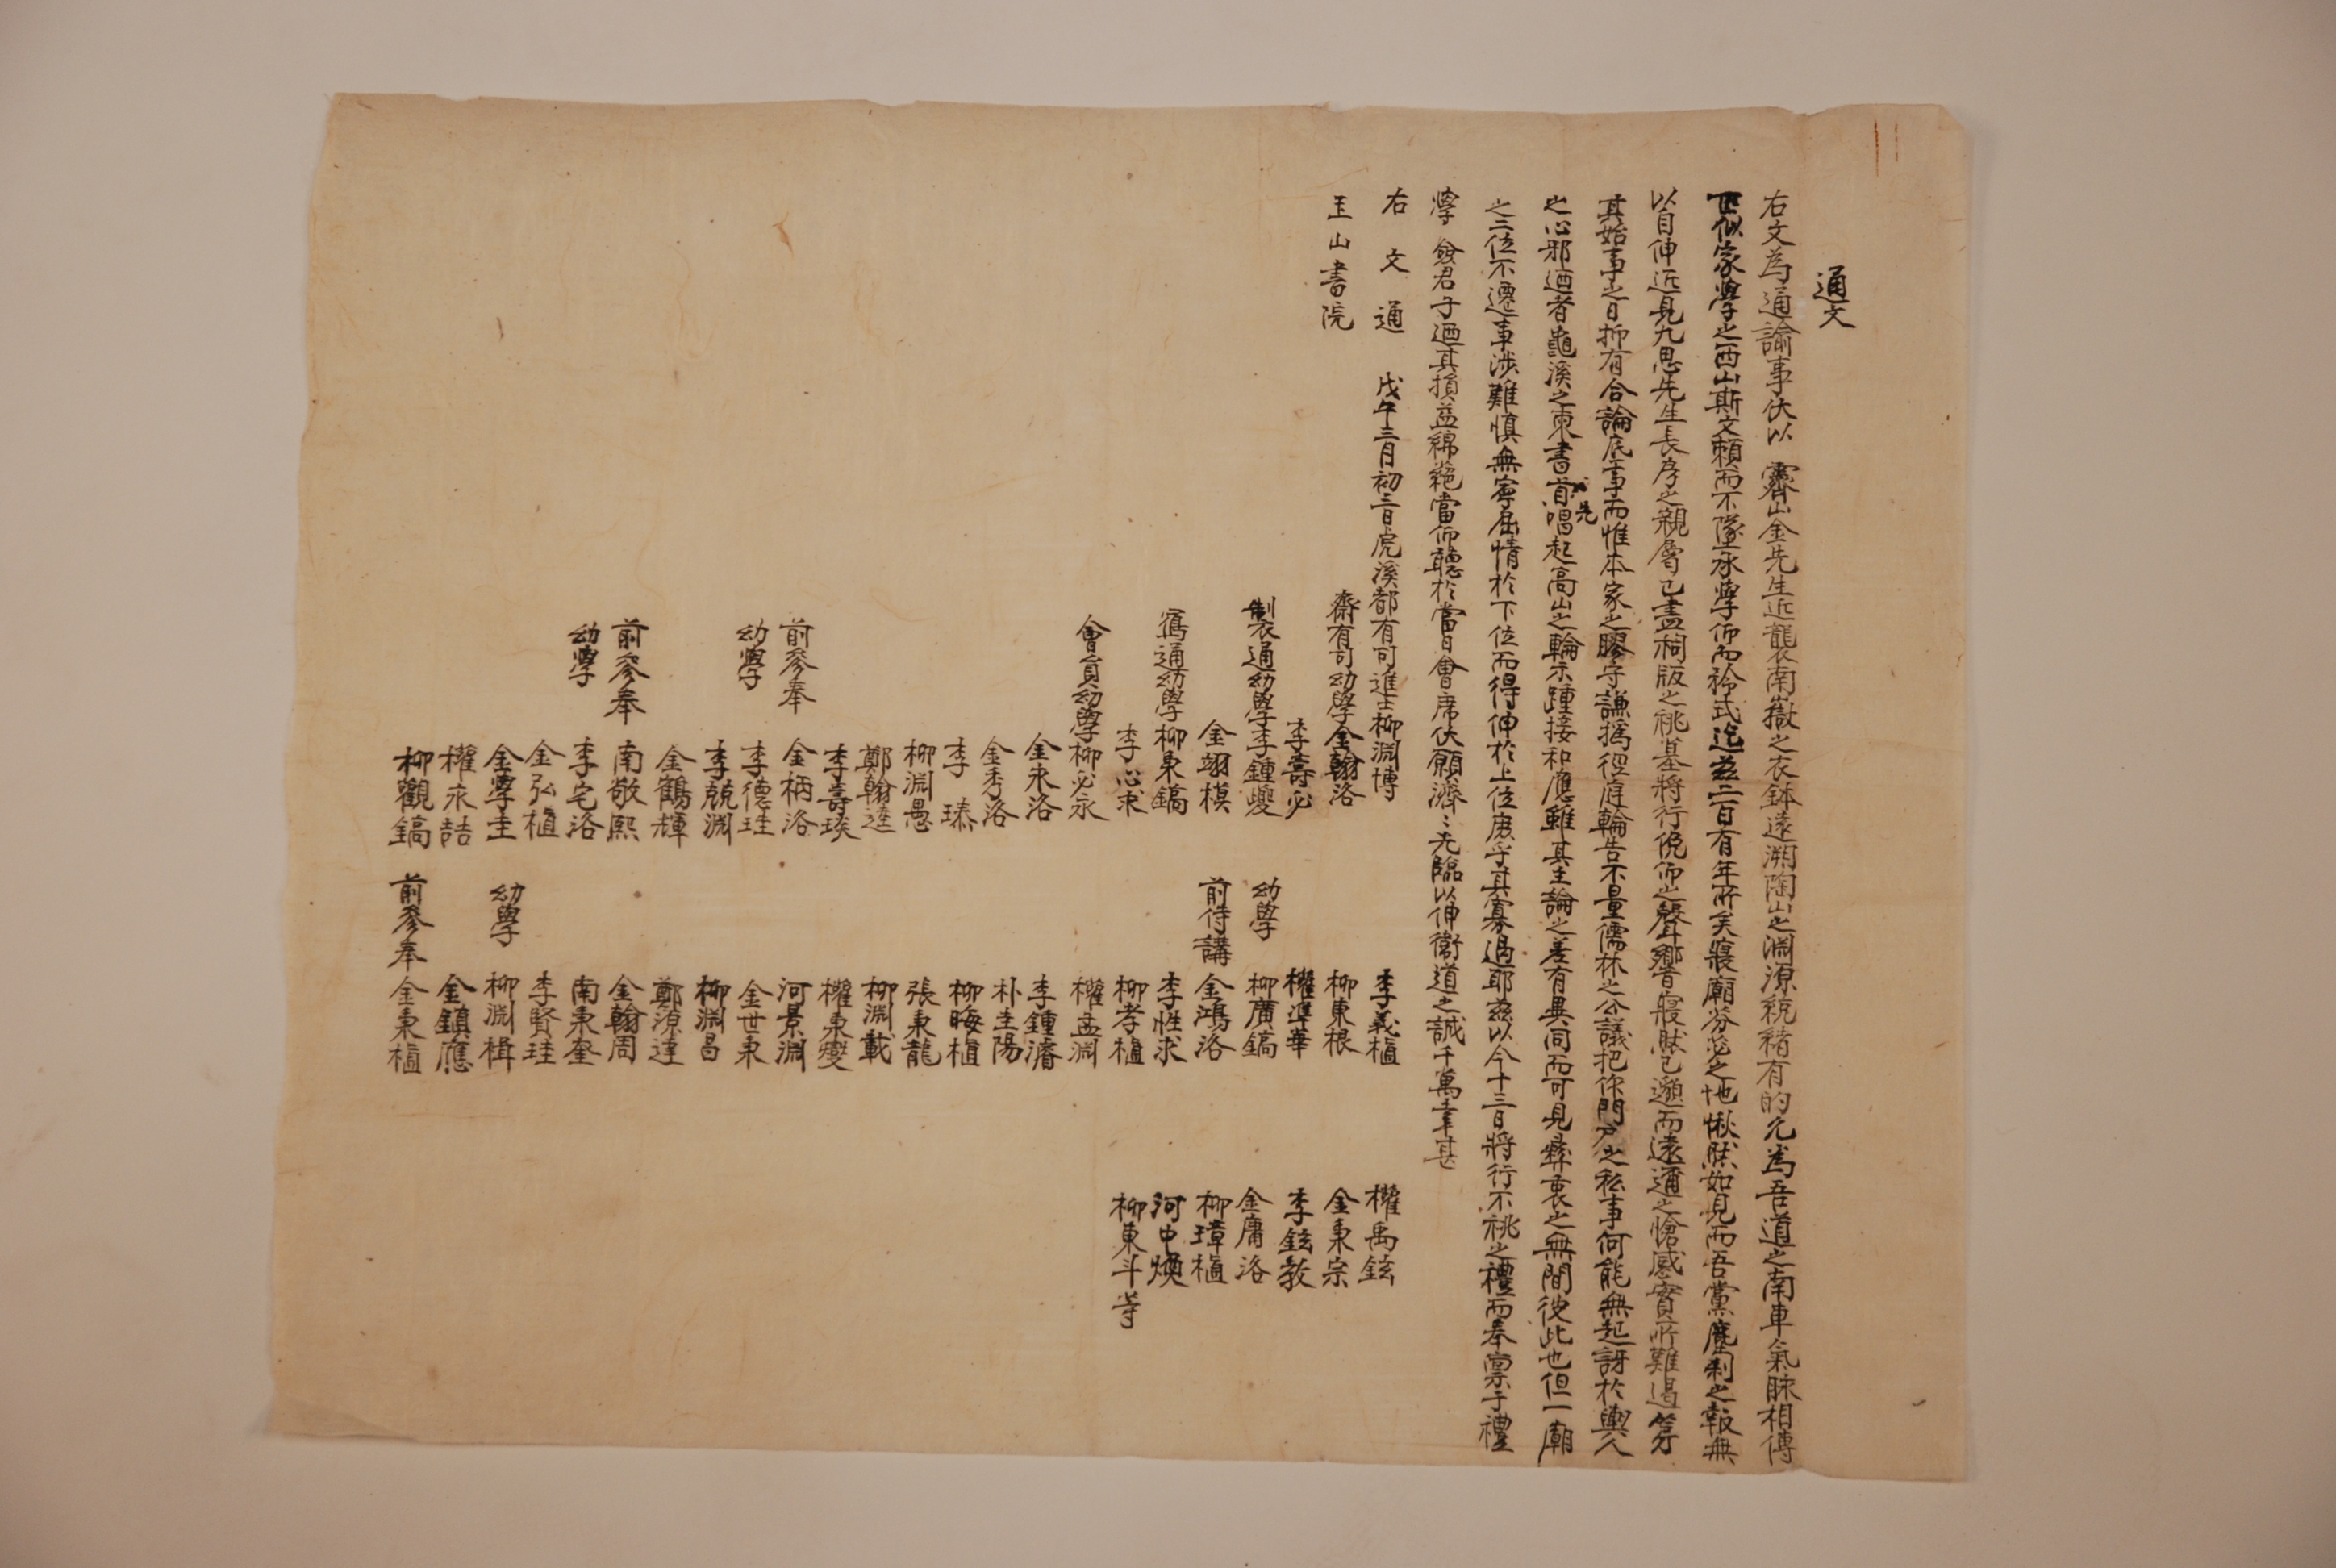 通文
右文為通諭事伏以 霽山金先生近襲南嶽之衣鉢遠溯陶山之淵源統緖有的允為吾道之南車氣脉相傳
匹似家學之西山斯文賴而不墜永學仰而矜式迄玆二百有年所矣寢廟芬苾之地愀然如見而吾黨塵刹之報無
以自伸近見九思先生長房之親屬已盡祠版之祧墓將行俛仰之聲響寢然已邈而遠邇之愴感實所難遏第
其始事之日抑有合論底事而惟本家之膠守謙撝徑庭輪告不量儒林之公議把作門戶之私事何能無起訝於輿人
之心邪迺者龜溪之東書首先唱起高山之輪示踵接和應雖其主論之差有異同而可見彛衷之無間彼此也但一廟
之三位不遷事涉難愼無寧屈情於下位而得伸於上位庶乎其寡過耶玆以今十三日將行不祧之禮而奉稟于禮
學 僉君子迺其損益綿蕝當仰聽於當日會席伏願濟〻光臨以伸衛道之誠千萬幸甚
右文通 戊午三月初三日虎溪都有司進士柳淵博 李義植 權禹鉉
玉山書院 齋有司幼學金翰洛 柳東根 金秉宗
李壽必 權準華 李鉉敎
製通幼學李鍾夔 幼學 柳廣鎬 金庸洛
金翊模 前侍講 金鴻洛 柳璋植
寫通幼學柳東鎬 李性求 河中煥
李心求 柳孝植 柳東斗等
會員幼學柳必永 權孟淵
金永洛 李鍾濬
金秀洛 朴圭陽
李 瑧 柳晦植
柳淵愚 張秉龍
鄭翰達 柳淵載
李壽琰 權東燮
前參奉 金柄洛 河景淵
幼學 李德珪 金世東
李兢淵 柳淵昌
金鶴輝 鄭源達
前參奉 南敬熙 金翰周
幼學 李宅洛 南秉奎
金弘植 李賢珪
金學圭 幼學 柳淵楫
權永喆 金鎭應
柳觀鎬 前參奉 金秉植